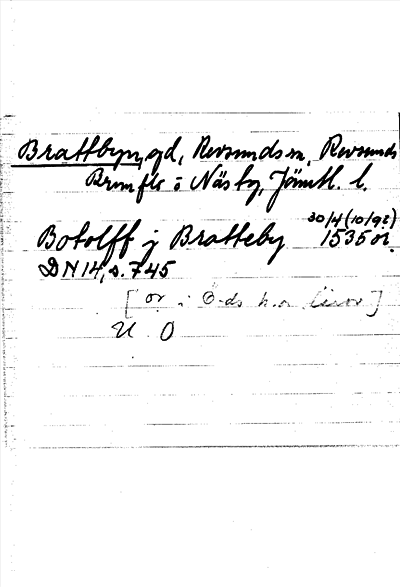 Brattbyn, gd, Revsunds sn, Revsunds
Brunflo o Näs tg, Jämtl. l.
30/4 (10/92)
Botolff j Bratteby 1535 or.
DN 14, s. 745
[or i Ö-ds h.
U O